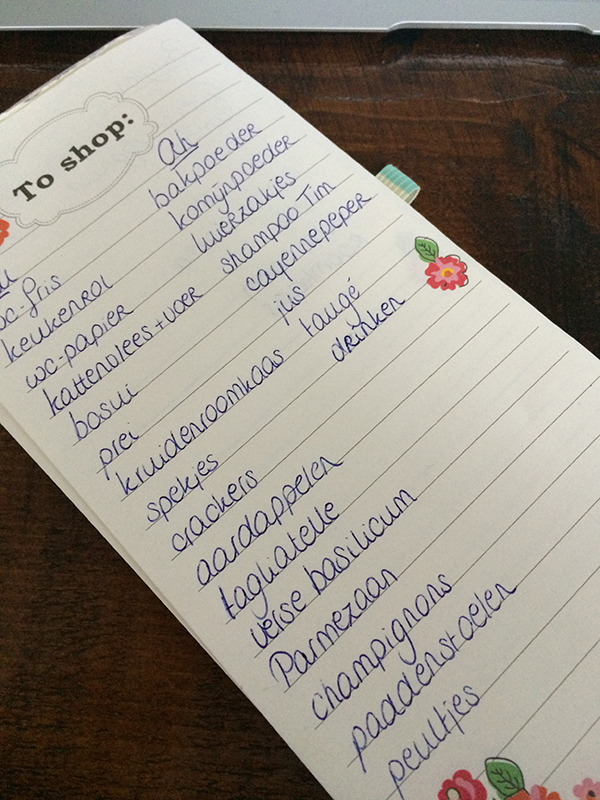 To shop:
wc-fris
keukenrol
wc-papier
kattenvlees+voer
bosui
prei
kruidenroomkaas
spekjes
crackers
aardappelen
tagliatelle
verse basilicum
Parmezaan
champignons
paddenstoelen
peultjes
Ah
bakpoeder
komijnpoeder
luierzakjes
shampoo Tim
cayennepeper
jus
taugé
drinken